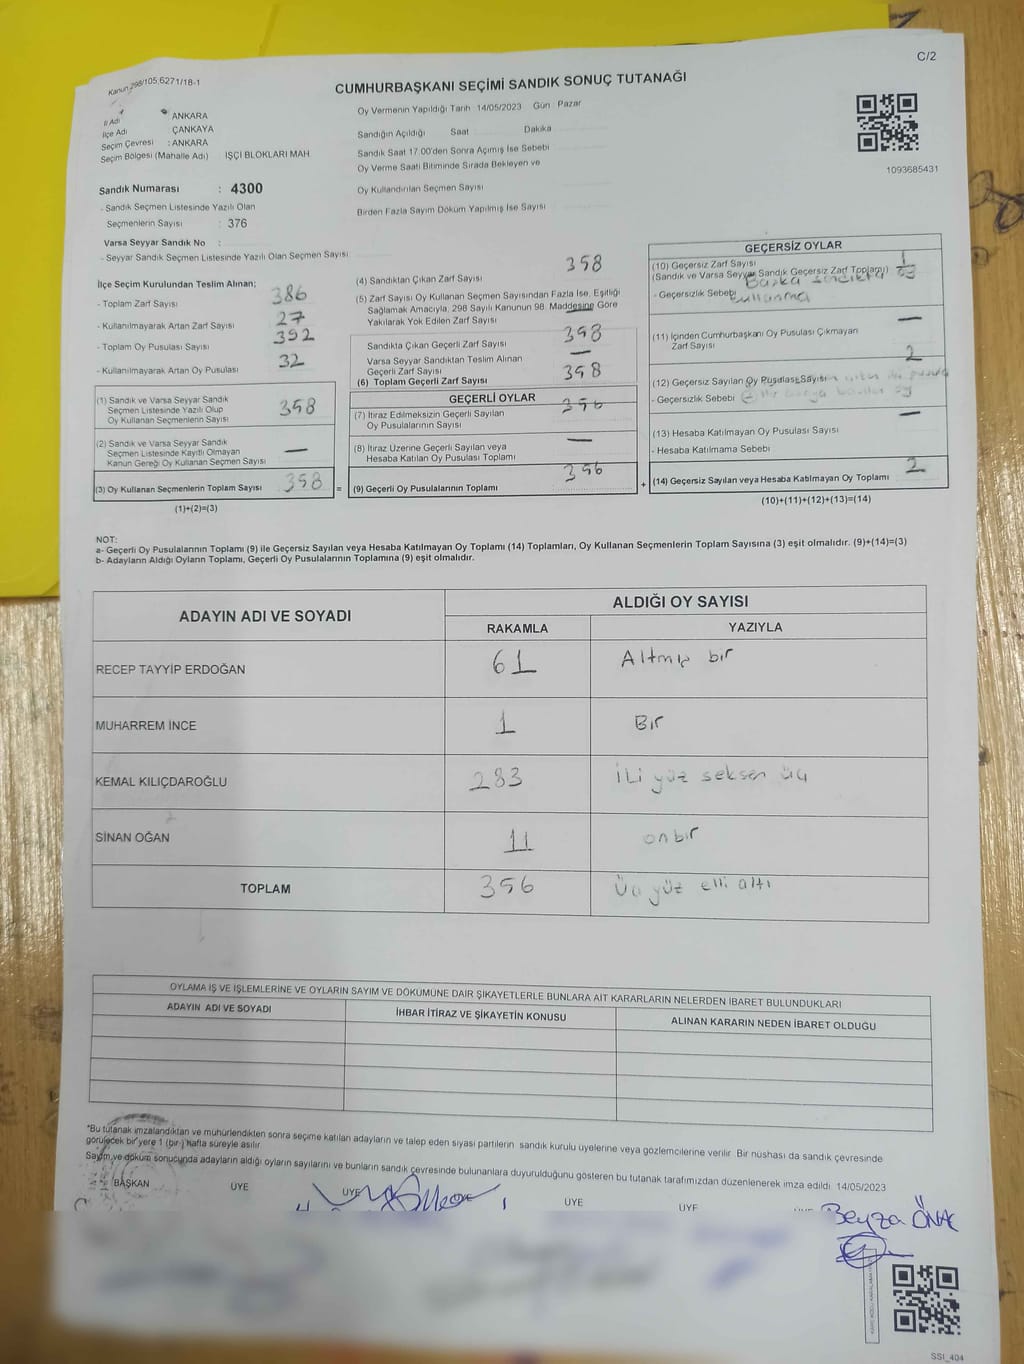 Kanun 298/105,6271/18-1
C/2
CUMHURBAŞKANI SEÇİMİ SANDIK SONUÇ TUTANAĞI
İl Adı : ANKARA
İlçe Adı ÇANKAYA
Seçim Çevresi : ANKARA
Seçim Bölgesi (Mahalle Adı) İŞÇİ BLOKLARI MAH.
Sandık Numarası : 4300
- Sandık Seçmen Listesinde Yazılı Olan
Seçmenlerin Sayısı : 376
Varsa Seyyar Sandık No :
- Seyyar Sandık Seçmen Listesinde Yazılı Olan Seçmen Sayısı
Oy Vermenin Yapıldığı Tarih 14/05/2023 Gün Pazar
Sandığın Açıldığı Saat Dakika
Sandık Saat 17.00'den Sonra Açımış İse Sebebi
Oy Verme Saati Bitiminde Sırada Bekleyen ve
Oy Kullandırılan Seçmen Sayısı
Birden Fazla Sayım Döküm Yapılmış İse Sayısı
1093685431
İlçe Seçim Kurulundan Teslim Alınan;
- Toplam Zarf Sayısı 386
- Kullanılmayarak Artan Zarf Sayısı 27
- Toplam Oy Pusulası Sayısı 392
- Kullanılmayarak Artan Oy Pusulası 32
(1) Sandık ve Varsa Seyyar Sandık
Seçmen Listesinde Yazılı Olup
Oy Kullanan Seçmenlerin Sayısı 358
(2) Sandık ve Varsa Seyyar Sandık
Seçmen Listesinde Kayıtlı Olmayan
Kanun Gereği Oy Kullanan Seçmen Sayısı —
(3) Oy Kullanan Seçmenlerin Toplam Sayısı 358 =
(1)+(2)=(3)
(4) Sandıktan Çıkan Zarf Sayısı 358
(5) Zarf Sayısı Oy Kullanan Seçmen Sayısından Fazla İse, Eşitliği
Sağlamak Amacıyla, 298 Sayılı Kanunun 98. Maddesine Göre
Yakılarak Yok Edilen Zarf Sayısı —
Sandıkta Çıkan Geçerli Zarf Sayısı 358
Varsa Seyyar Sandıktan Teslim Alınan
Geçerli Zarf Sayısı —
(6) Toplam Geçerli Zarf Sayısı 358
GEÇERLİ OYLAR
(7) İtiraz Edilmeksizin Geçerli Sayılan
Oy Pusulalarının Sayısı 356
(8) İtiraz Üzerine Geçerli Sayılan veya
Hesaba Katılan Oy Pusulası Toplamı —
(9) Geçerli Oy Pusulalarının Toplamı 356 +
GEÇERSİZ OYLAR
(10) Geçersiz Zarf Sayısı
(Sandık ve Varsa Seyyar Sandık Geçersiz Zarf Toplamı)
- Geçersizlik Sebebi Başka sandıkta oy
kullanma
(11) İçinden Cumhurbaşkanı Oy Pusulası Çıkmayan
Zarf Sayısı —
2
(12) Geçersiz Sayılan Oy Pusulası Sayısı
- Geçersizlik Sebebi
(13) Hesaba Katılmayan Oy Pusulası Sayısı —
- Hesaba Katılmama Sebebi
(14) Geçersiz Sayılan veya Hesaba Katılmayan Oy Toplamı 2
(10)+(11)+(12)+(13)=(14)
NOT:
a- Geçerli Oy Pusulalarının Toplamı (9) ile Geçersiz Sayılan veya Hesaba Katılmayan Oy Toplamı (14) Toplamları, Oy Kullanan Seçmenlerin Toplam Sayısına (3) eşit olmalıdır. (9)+(14)=(3)
b- Adayların Aldığı Oyların Toplamı, Geçerli Oy Pusulalarının Toplamına (9) eşit olmalıdır.
ADAYIN ADI VE SOYADI ALDIĞI OY SAYISI
RAKAMLA YAZIYLA
RECEP TAYYİP ERDOĞAN 61 Altmış bir
MUHARREM İNCE 1 Bir
KEMAL KILIÇDAROĞLU 283 İki yüz seksen üç
SİNAN OĞAN 11 onbir
TOPLAM 356 Üç yüz elli altı
OYLAMA İŞ VE İŞLEMLERİNE VE OYLARIN SAYIM VE DÖKÜMÜNE DAİR ŞİKAYETLERLE BUNLARA AİT KARARLARIN NELERDEN İBARET BULUNDUKLARI
ADAYIN ADI VE SOYADI İHBAR İTİRAZ VE ŞİKAYETİN KONUSU ALINAN KARARIN NEDEN İBARET OLDUĞU
*Bu tutanak imzalandıktan ve mühürlendikten sonra seçime katılan adayların ve talep eden siyasi partilerin sandık kurulu üyelerine veya gözlemcilerine verilir. Bir nüshası da sandık çevresinde
görülecek bir yere 1 (bir ) hafta süreyle asılır.
Sayım ve döküm sonucunda adayların aldığı oyların sayılarını ve bunların sandık çevresinde bulunanlara duyurulduğunu gösteren bu tutanak tarafımızdan düzenlenerek imza edildi. 14/05/2023
BAŞKAN ÜYE ÜYE ÜYE ÜYE
Beyza ÖNAL
SSI_404